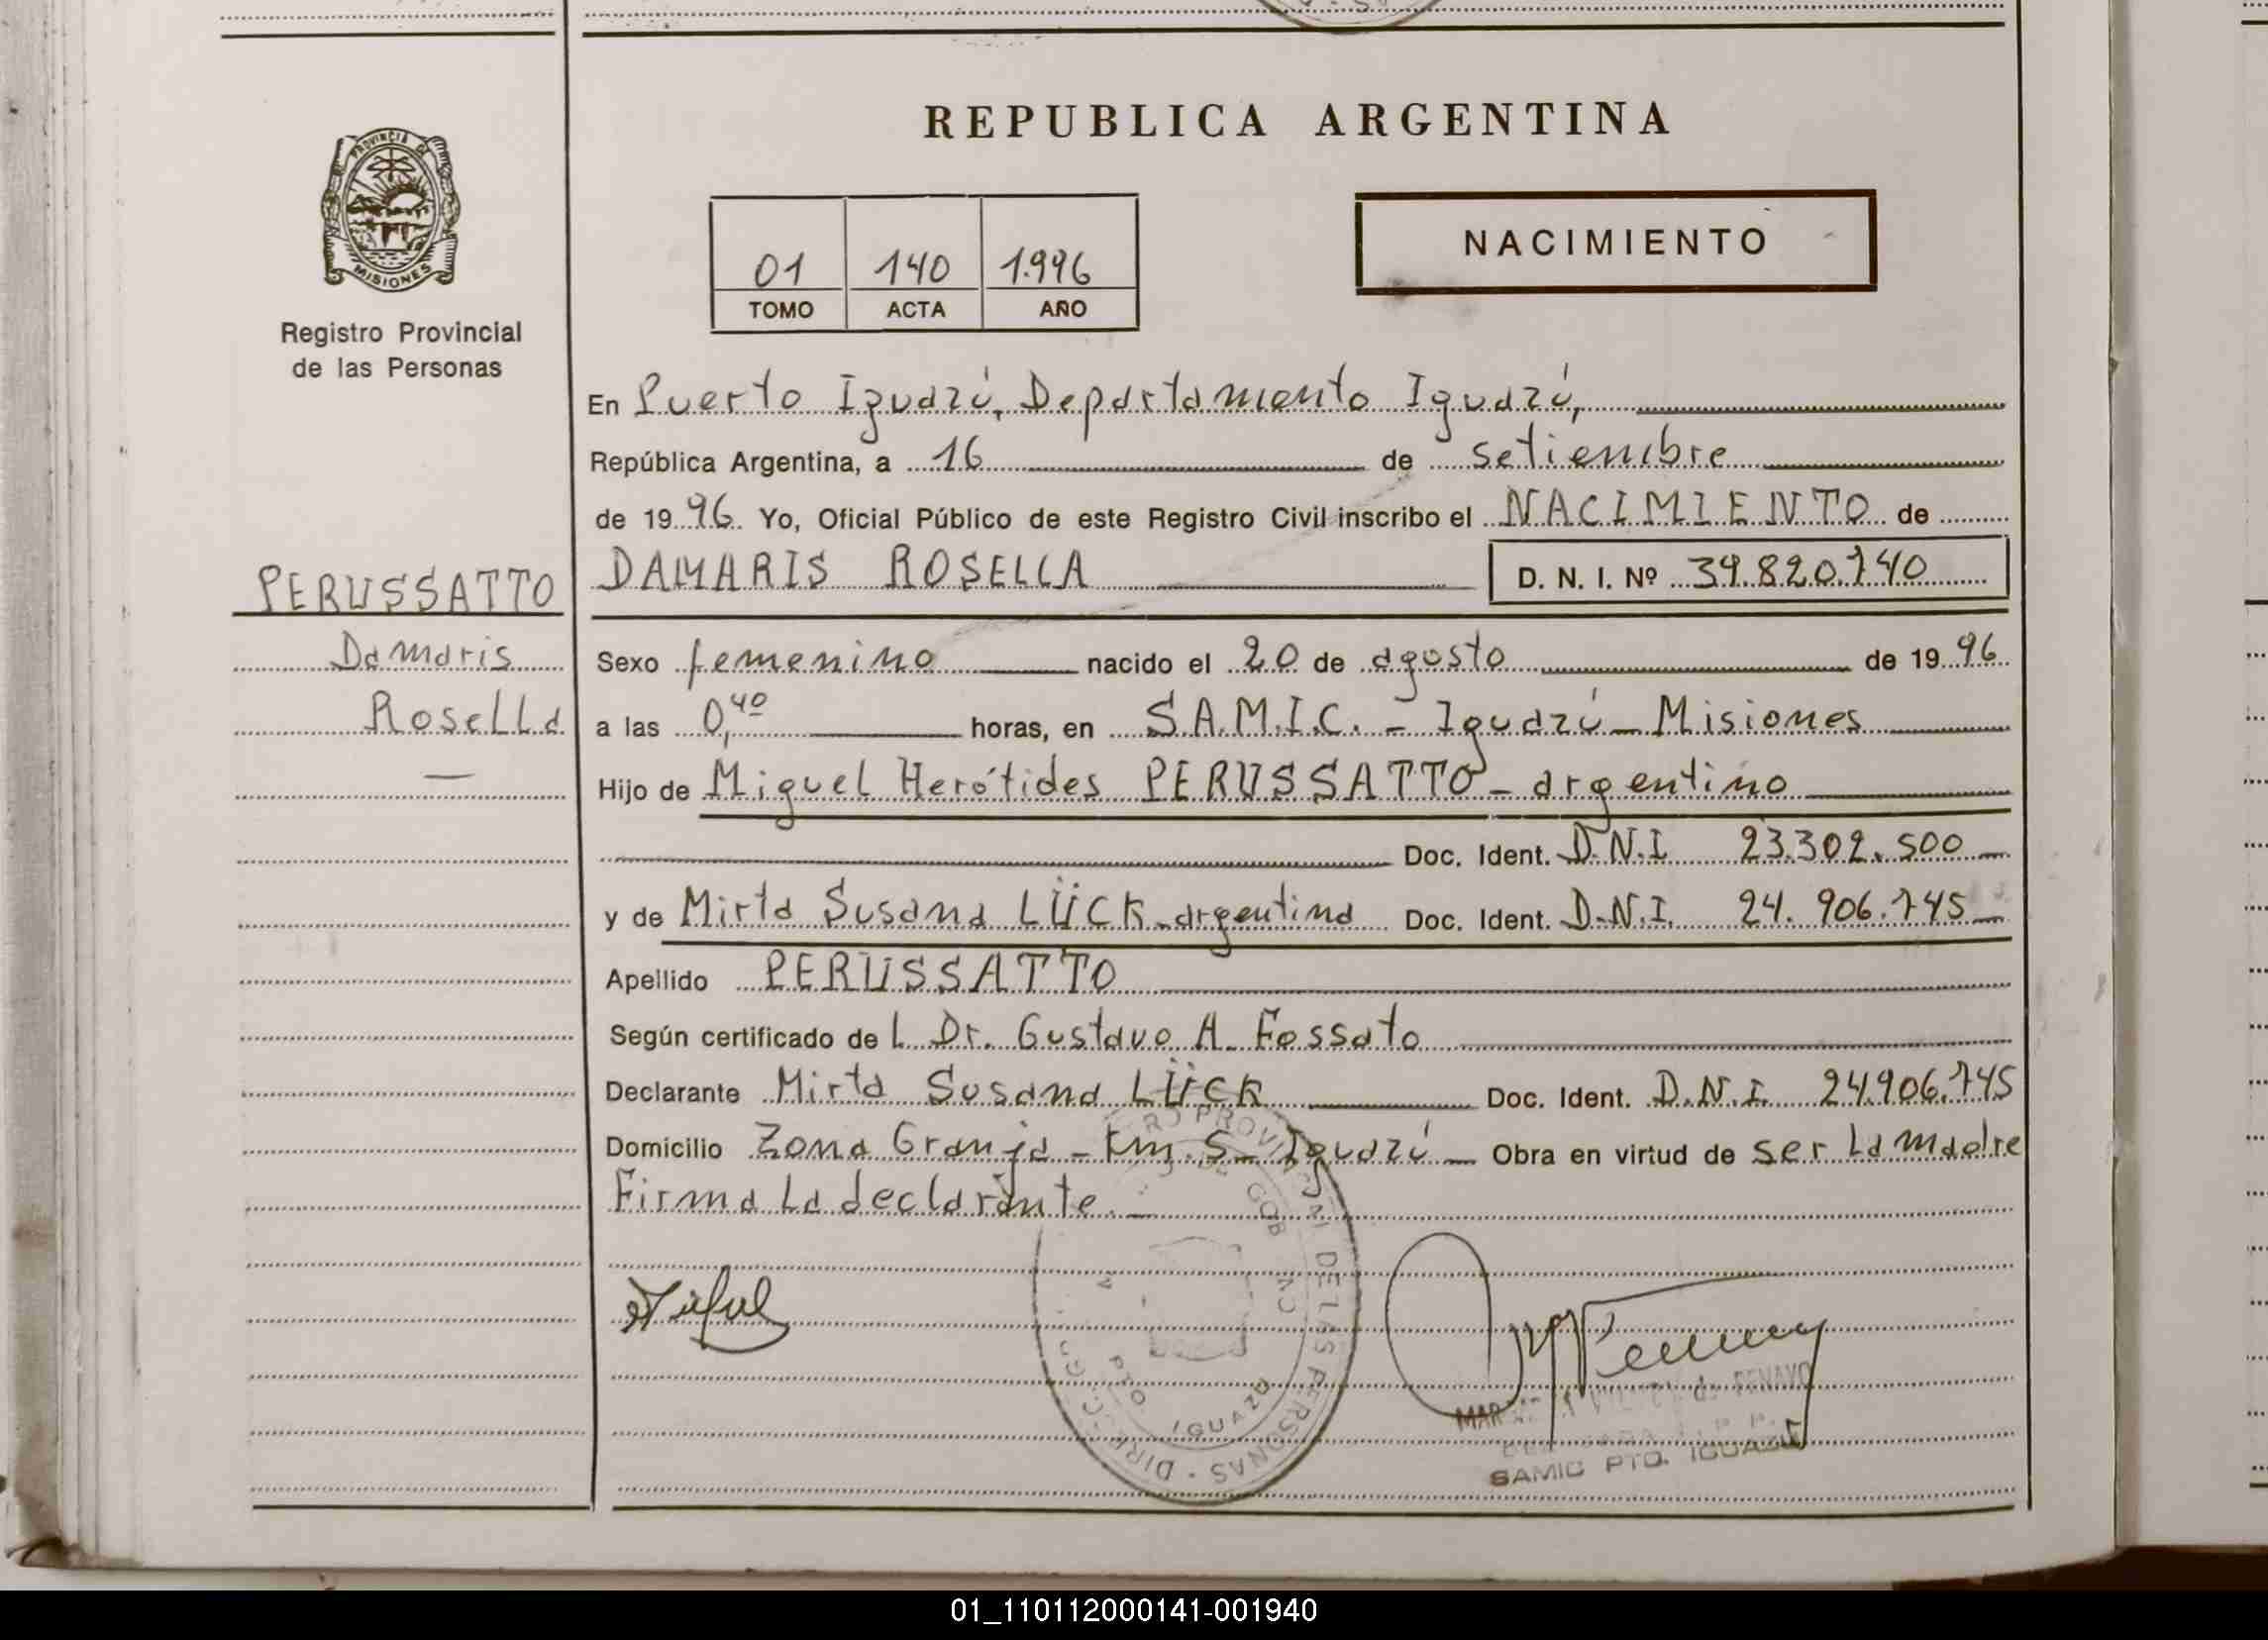 REPUBLICA ARGENTINA
PROVINCIA DE
MISIONES
Registro Provincial
de las Personas
01 140 1.996
TOMO ACTA AÑO
NACIMIENTO
En Puerto Iguazú, Departamento Iguazú,
República Argentina, a 16 de setiembre
de 1996. Yo, Oficial Público de este Registro Civil inscribo el NACIMIENTO de
PERUSSATTO
Damaris
Rosella
DAMARIS ROSELLA D. N. I. Nº 39.820.740
Sexo femenino nacido el 20 de agosto de 1996
a las 0,40 horas, en S.A.M.I.C. - Iguazú - Misiones
Hijo de Miguel Herótides PERUSSATTO - argentino
Doc. Ident. D.N.I 23.302.500
y de Mirta Susana LÜCK - argentina Doc. Ident. D.N.I. 24.906.745
Apellido PERUSSATTO
Según certificado del Dr. Gustavo A. Fossato
Declarante Mirta Susana LÜCK Doc. Ident. D.N.I. 24.906.745
Domicilio Zona Granja - Km. 5 - Iguazú - Obra en virtud de ser la madre
Firma la declarante. -
DE LAS PERSONAS
PTO IGUAZU
SAMIC PTO. IGUAZU
01_110112000141-001940